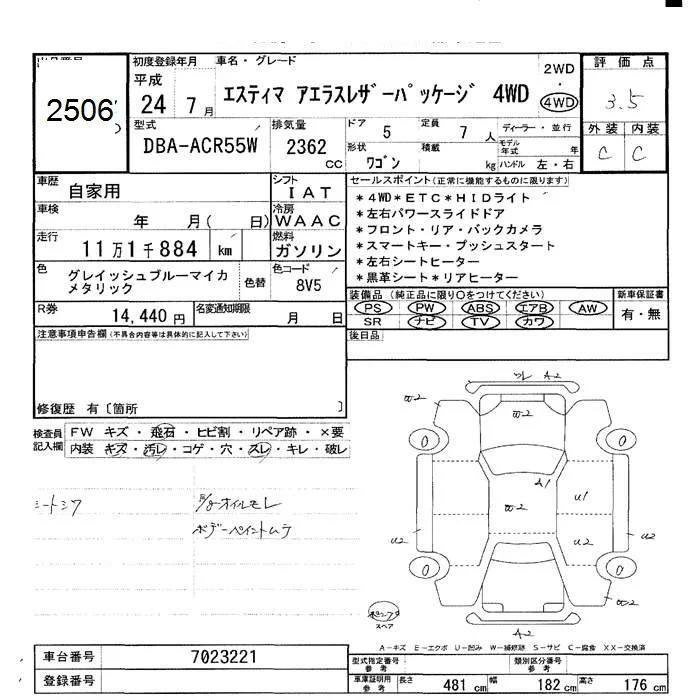 2506
初度登録年月
平成
24年 7月
車名・グレード
エスティマ アエラスレザーパッケージ 4WD
2WD
・
4WD
評価点
3.5
外装 内装
C C
型式
DBA-ACR55W
排気量
2362
CC
ドア
5
定員
7人
形状
ワゴン
積載
kg
ディーラー・並行
モデル年式 年
ハンドル 左・右
車歴
自家用
シフト
IAT
車検
年 月( 日)
冷房
WAAC
走行
11万1千884 km
燃料
ガソリン
色
グレイッシュブルーマイカ
メタリック
色替
色コード
8V5
R券
14,440円
名変通知期限
月 日
セールスポイント(正常に機能するものに限ります)
*4WD*ETC*HIDライト
*左右パワースライドドア
*フロント・リア・バックカメラ
*スマートキー・プッシュスタート
*左右シートヒーター
*黒革シート*リアヒーター
装備品 (純正品に限り○をつけてください)
PS PW ABS エアB AW
SR ナビ TV カワ
新車保証書
有・無
後日品
注意事項申告欄(不具合内容等は具体的に記入して下さい)
修復歴 有〔箇所 〕
検査員
記入欄
FW キズ・飛石・ヒビ割・リペア跡・×要
内装 キズ・汚レ・コゲ・穴・スレ・キレ・破レ
シートシワ
オイルモレ
ボデーペイントムラ
A2
W2
W2
A1
U1
W2
U2
U2
U2
W2
A2
スペア
A-キズ E-エクボ U-凹み W-補修跡 S-サビ C-腐食 XX-交換済
車台番号
7023221
登録番号
型式指定番号
参考
類別区分番号
参考
車庫証明用
参考
長さ 481cm 幅 182cm 高さ 176cm